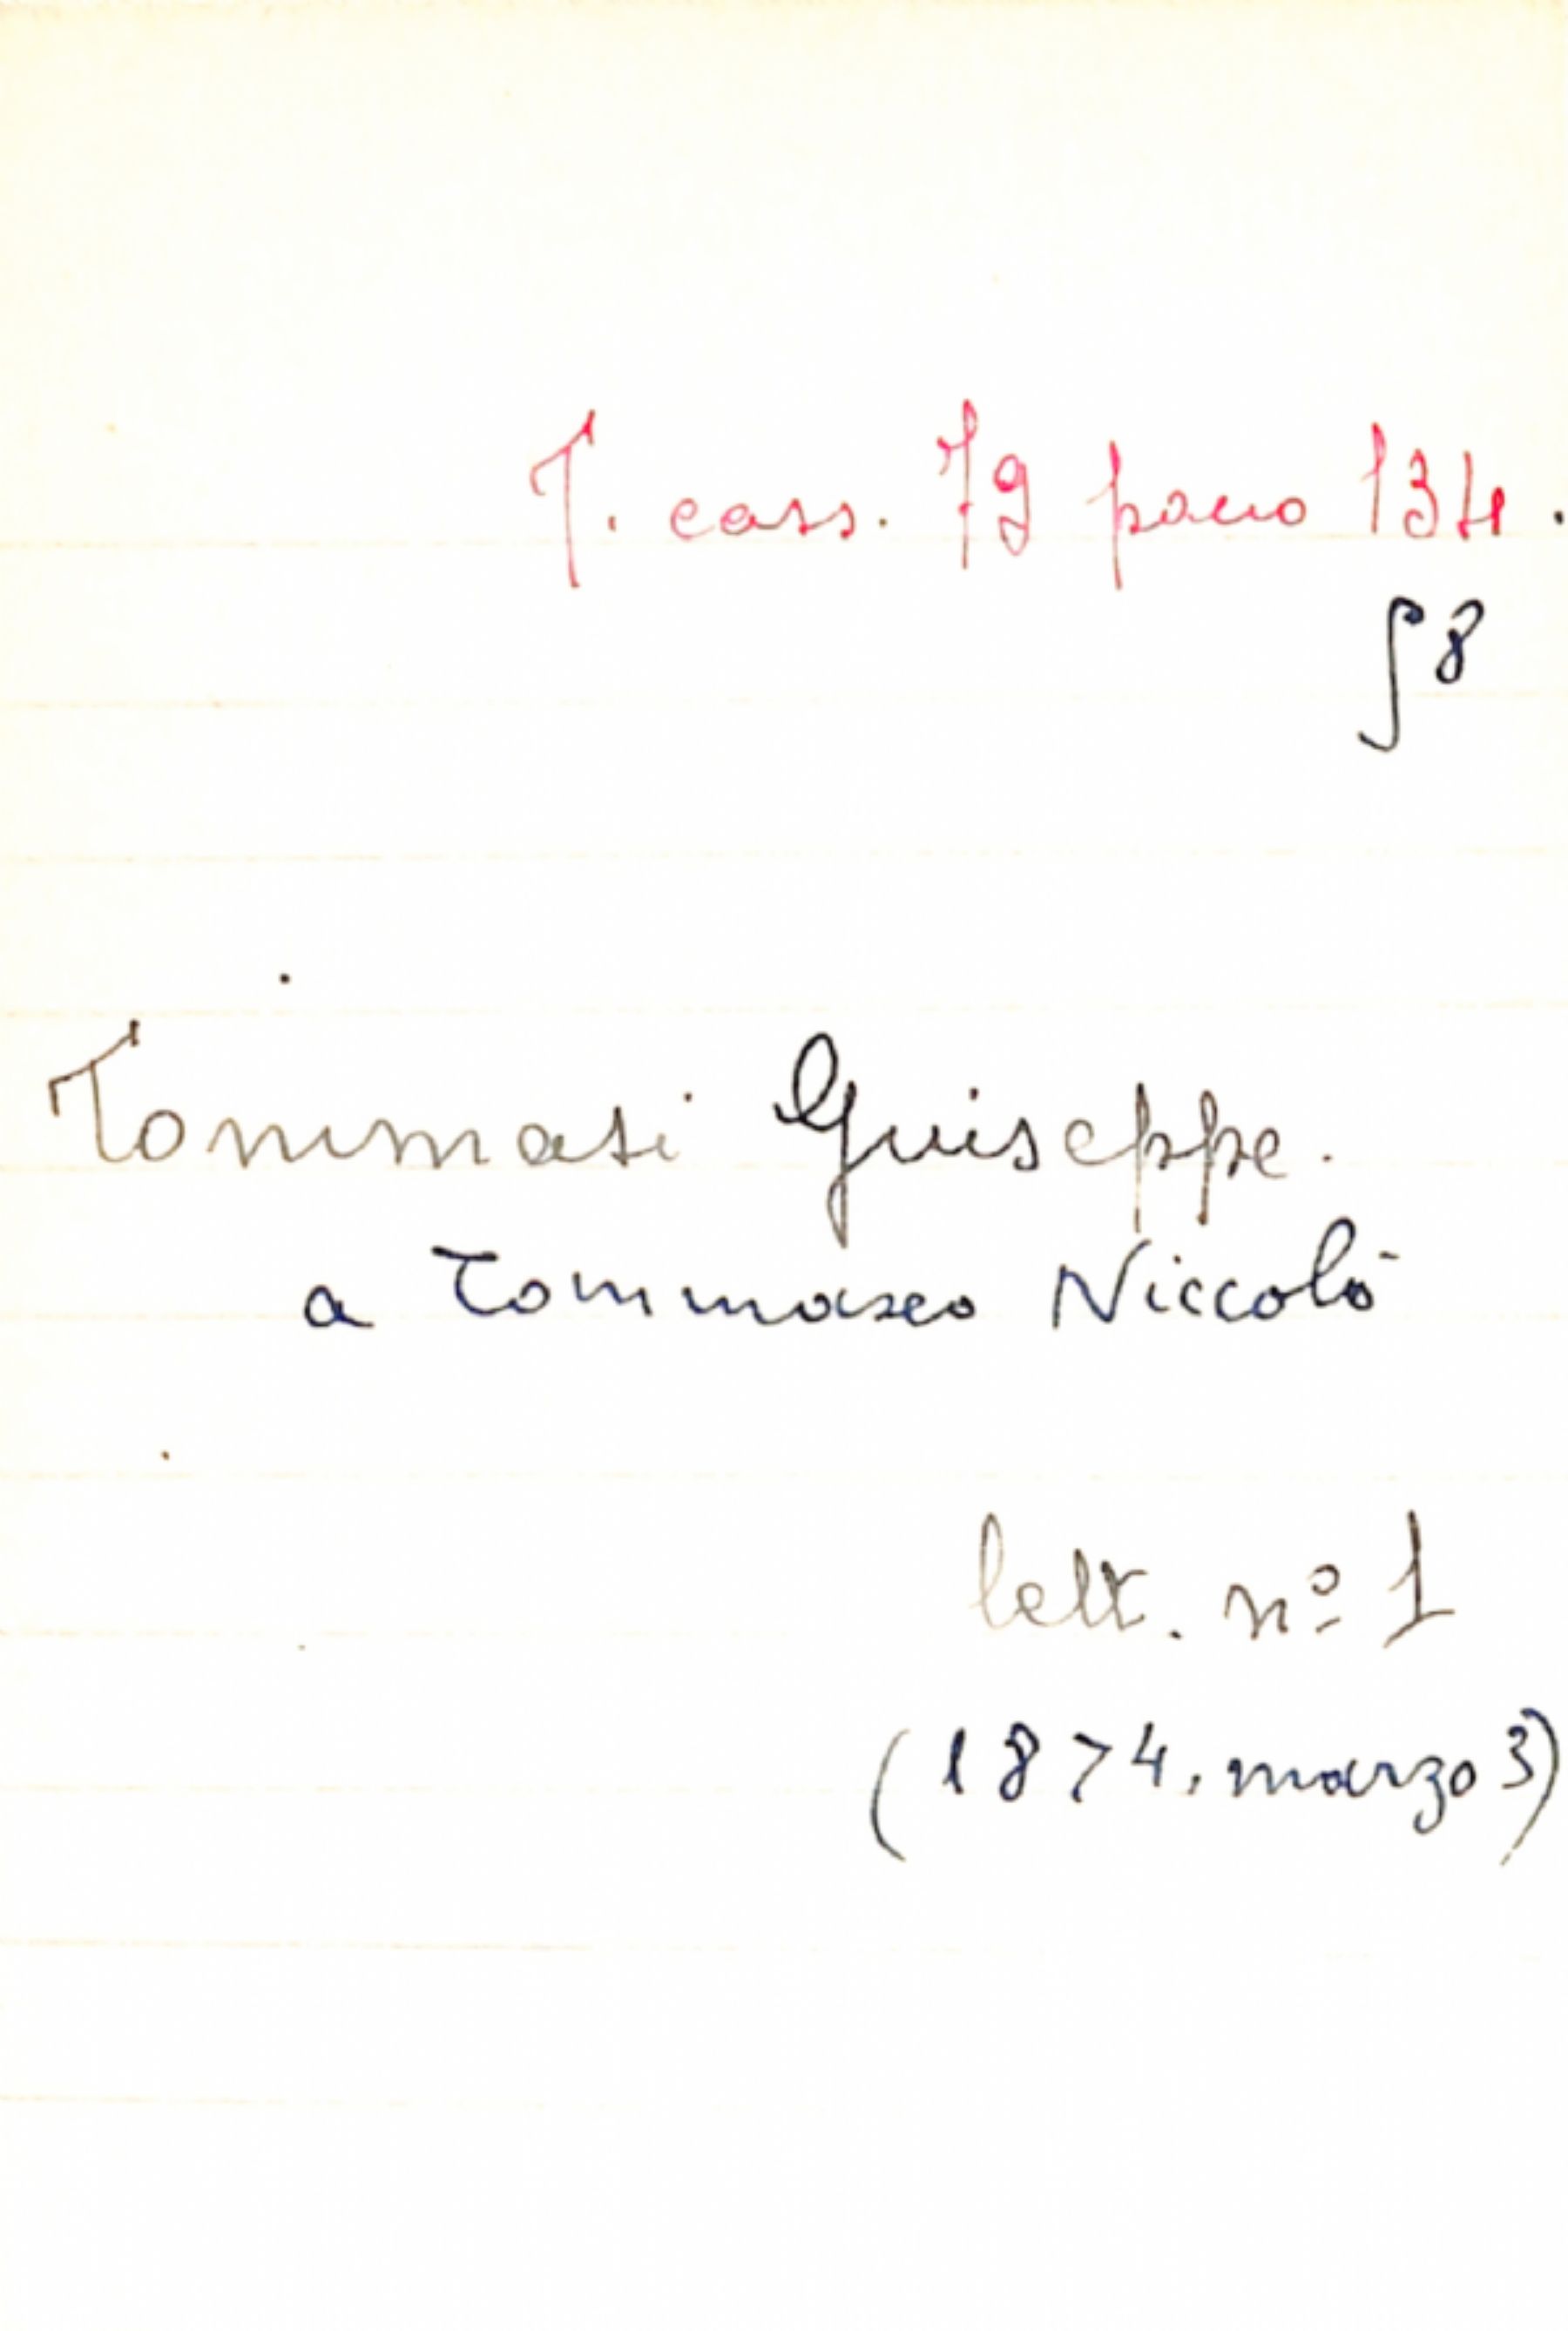 T. cass. 79 pacco 134.
∫8
Tommasi Giuseppe.
a Tommaseo Niccolò
lett. nº 1
(1874, marzo 3)